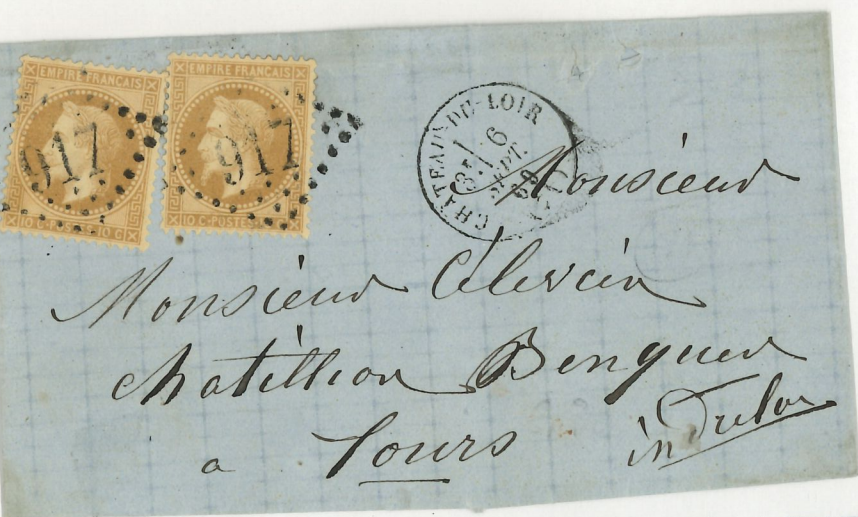 EMPIRE FRANÇAIS
10 C-POSTES-10 C
917
EMPIRE FRANÇAIS
10 C-POSTES
917
CHATEAU-DU-LOIR
6
SEPT.
69
Monsieur
Monsieur Célescin
Chatillion Benquier
a Tours